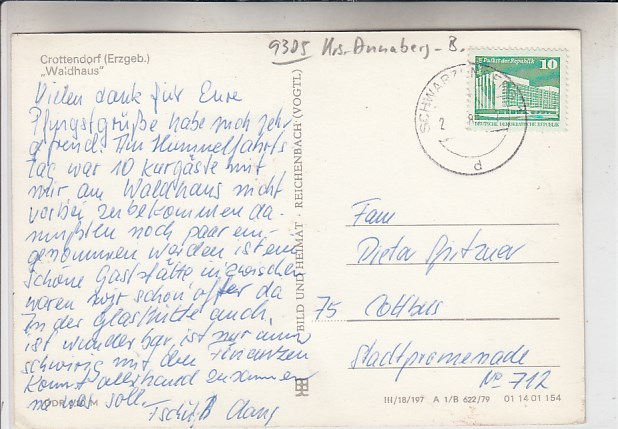 9305 Krs. Annaberg-B.
Crottendorf (Erzgeb.)
„Waldhaus"
Vielen dank für Eure
Pfingstgrüße habe mich sehr
gefreud. Am Himmelfahrts
tag war 10 Kurgäste mit
mir am Waldhaus nicht
vorbei zubekommen da
mußten noch paar ein-
genommen warden ist eine
schöne Gaststätte inzwischen
waren wir schon öfter da
In der Glashütte auch.
ist wunderbar, ist nur
schwirig mit den Finanzen
kommt allerhand zusammen
na was soll.
Tschüß Claus
DDR M
BILD UND HEIMAT · REICHENBACH (VOGTL)
Palast der Republik 10
DEUTSCHE DEMOKRATISCHE REPUBLIK
SCHWARZENBERG
d
Fam
Dieter Spitzner
75 Cottbus
Stadtpromenade
No 712
III/18/197 A 1/B 622/79 01 14 01 154